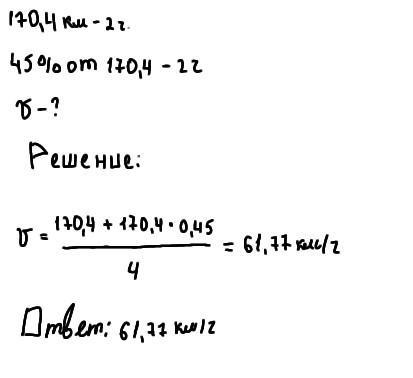 170,4 км - 2ч.
45% от 170,4 - 2ч
v - ?
Решение:
v = (170,4 + 170,4 · 0,45) / 4 = 61,77 км/ч
Ответ: 61,77 км/ч